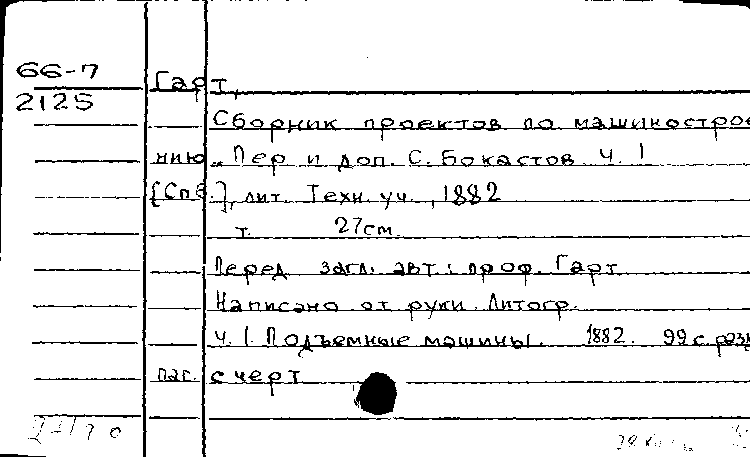 66-7
2125
Гарт,
Сборник проектов по машиностpое
нию. Пер и доп. С. Бокастов Ч. 1
[Спб.], лит. Техн. уч., 1882
т. 27см.
Перед загл. авт: проф. Гарт
Написано от руки. Литогр.
ч. 1. Подъемные машины. 1882. 99 с. разн
паг. с черт